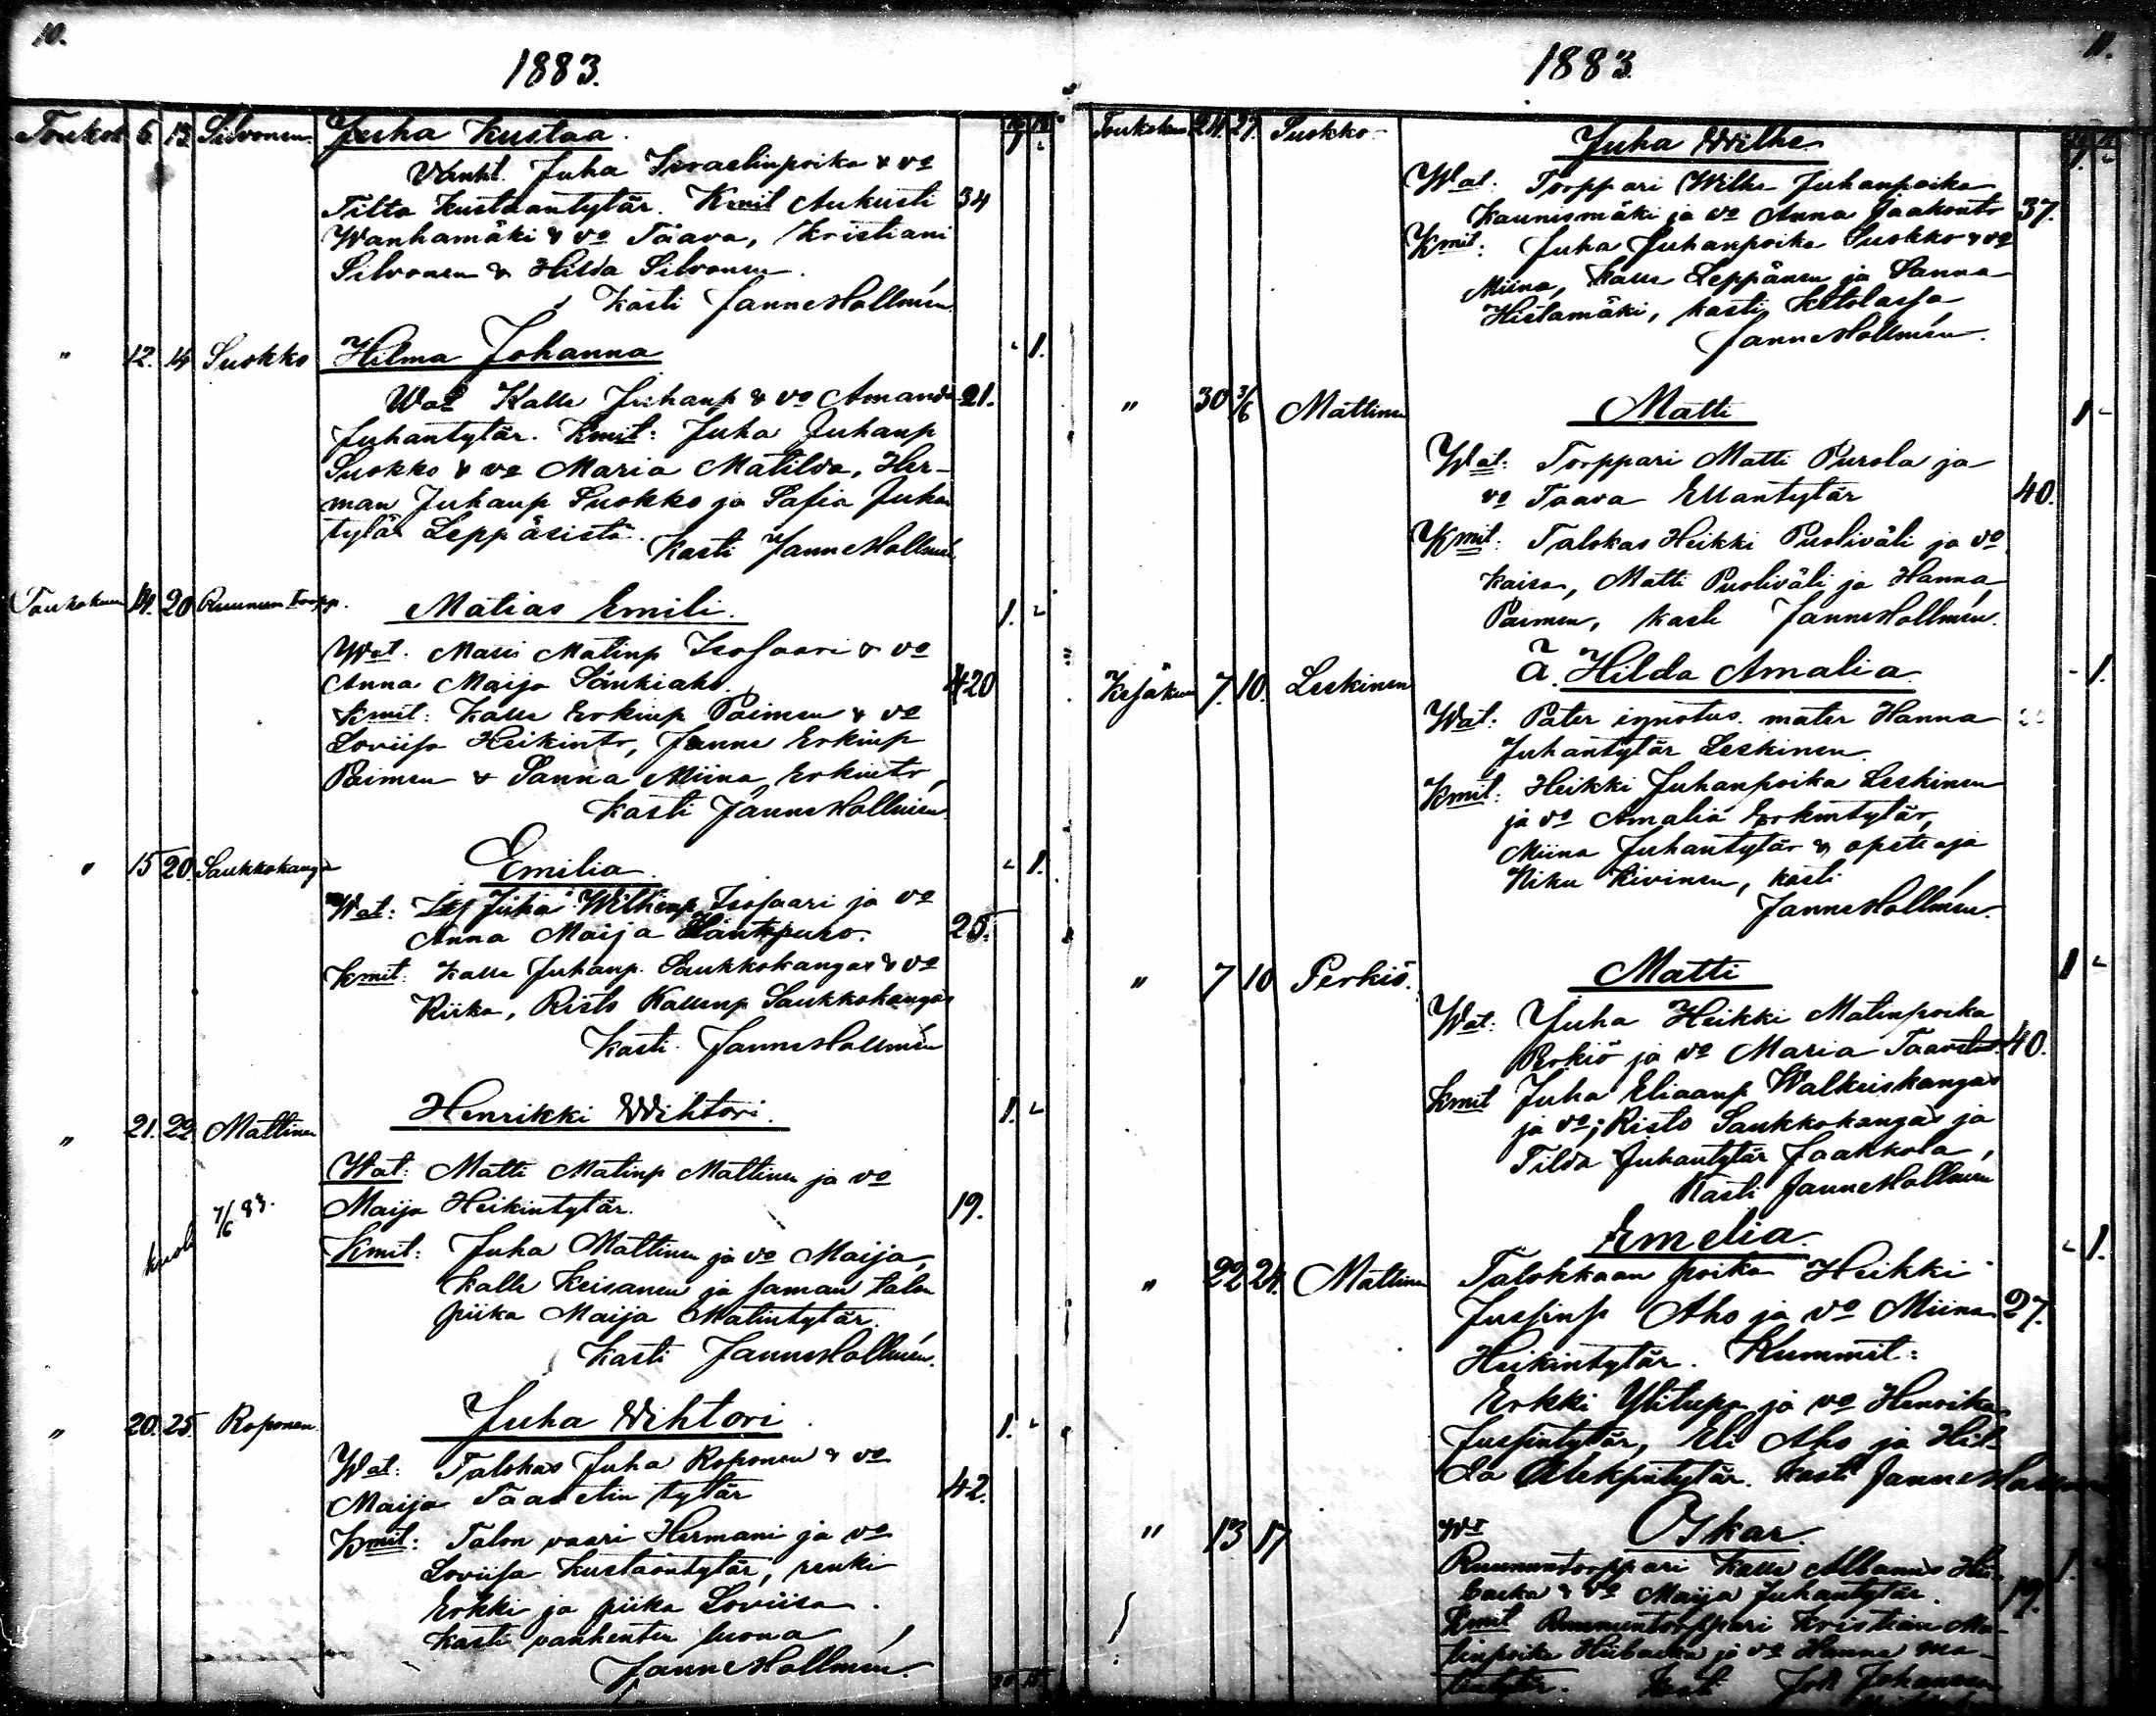 10.
1883.
Toukok 6. 13. Silvonen. Juha Kustaa.
Juha Israelinpoika & vo
Tilta Kustaantytär. Kmit Aukusti 34
Wanhamäki & vo Taava, Kristiani
Silvonen & Hilda Silvonen.
Kasti Janne Hallmén.
" 12. 14 Suokko Hilma Johanna - 1.
Wat Kalle Juhanp & vo Amanda 21.
Juhantytär. Kmit: Juha Juhanp
Suokko & vo Maria Matilda, Her-
man Juhanp Suokko ja Safia Juhan
tytär Leppäsistä.
Kasti Janne Hallmén
Toukokuu 14. 20 Ruunun torpp. Matias Emili. 1. -
Wat. Matinp Isosaari & vo
Anna Maija Sänkiaho. 20
Kmit: Kalle Erkinp Paimen & vo
Loviisa Heikintr, Janne Erkinp
Paimen & Sanna Miina Erkintr,
Kasti Janne Hallmén.
" 15 20. Saukkokangas Emilia. - 1.
Wat: Juha Wilhemp Isosaari ja vo
Anna Maija 25.
Kmit: Kalle Juhanp. Saukkokangas & vo
Riika, Risto Kallenp Saukkokangas
Kasti. Janne Hallmén
" 21. 22 Mattinen Henrikki Wihtori. 1. -
Wat: Matti Matinp Mattinen ja vo
Maija Heikintytär. 19.
kuoli 7/6 83.
Kmit: Juha Mattinen ja vo Maija,
Kalle Keisanen ja saman talon
piika Maija Matintytär.
Kasti Janne Hallmén.
" 20. 25 Roponen Juha Wihtori. 1. -
Wat: Talokas Juha Roponen & vo
Maija Taavetin tytär 42.
Kmit: Talon vaari Hermani ja vo
Loviisa Kustaantytär, renki
Erkki ja piika Loviisa.
Kasti vanhenten luona
Janne Hallmén.
11.
1883.
Toukokuu 24. 27. Suokko- Juha Wilhe
Wat: Torppari Wilhe Juhanpoika
Kaunismäki ja vo Anna Jaakontr 37.
Kmit: Juha Juhanpoika Suokko & vo
Miina, Kalle Leppänen ja Sanna
Hietamäki, kasti Ketolassa
Janne Hallmén.
" 30 3/6 Mattinen Matti 1 -
Wat: Torppari Matti Purola ja
vo Taava Ellantytär 40.
Kmit: Talokas Heikki Puoliväli ja vo
Kaisa, Matti Puoliväli ja Hanna
Paimen, kasti Janne Hallmén.
Kesäkuu 7. 10. Leskinen Ä. Hilda Amalia - 1.
Wat: Pater ignotus. mater Hanna
Juhantytär Leskinen.
Kmit: Heikki Juhanpoika Leskinen
ja vo Amalia Erkintytär,
Miina Juhantytär & opettaja
Kivinen, kasti
Janne Hallmén.
" 7 10 Perkiö. Matti 1 -
Wat: Juha Heikki Matinpoika
Perkiö ja vo Maria 40.
Kmit Juha Eliaanp Walkeiskangas
ja vo; Risto Saukkokangas ja
Tilda Juhantytär Jaakkola,
Kasti Janne Hallmén
Emelia. - 1.
" 22 24. Mattinen Talokkaan poika Heikki
Jussinp Aho ja vo Miina 27.
Heikintytär. Kummit:
Erkki Ylitupa ja vo Henrika
Jussintytär, Eli Aho ja Hil-
da Kasti Janne Hallmén
" 13 17 Oskar.
Ruununtorppari Kalle
& vo Maija Juhantytär. 19.
Kmit Ruununtorppari Kristian Ma-
tinpoika ja vo Hanna Ma-
tintytär. Joh Johansson